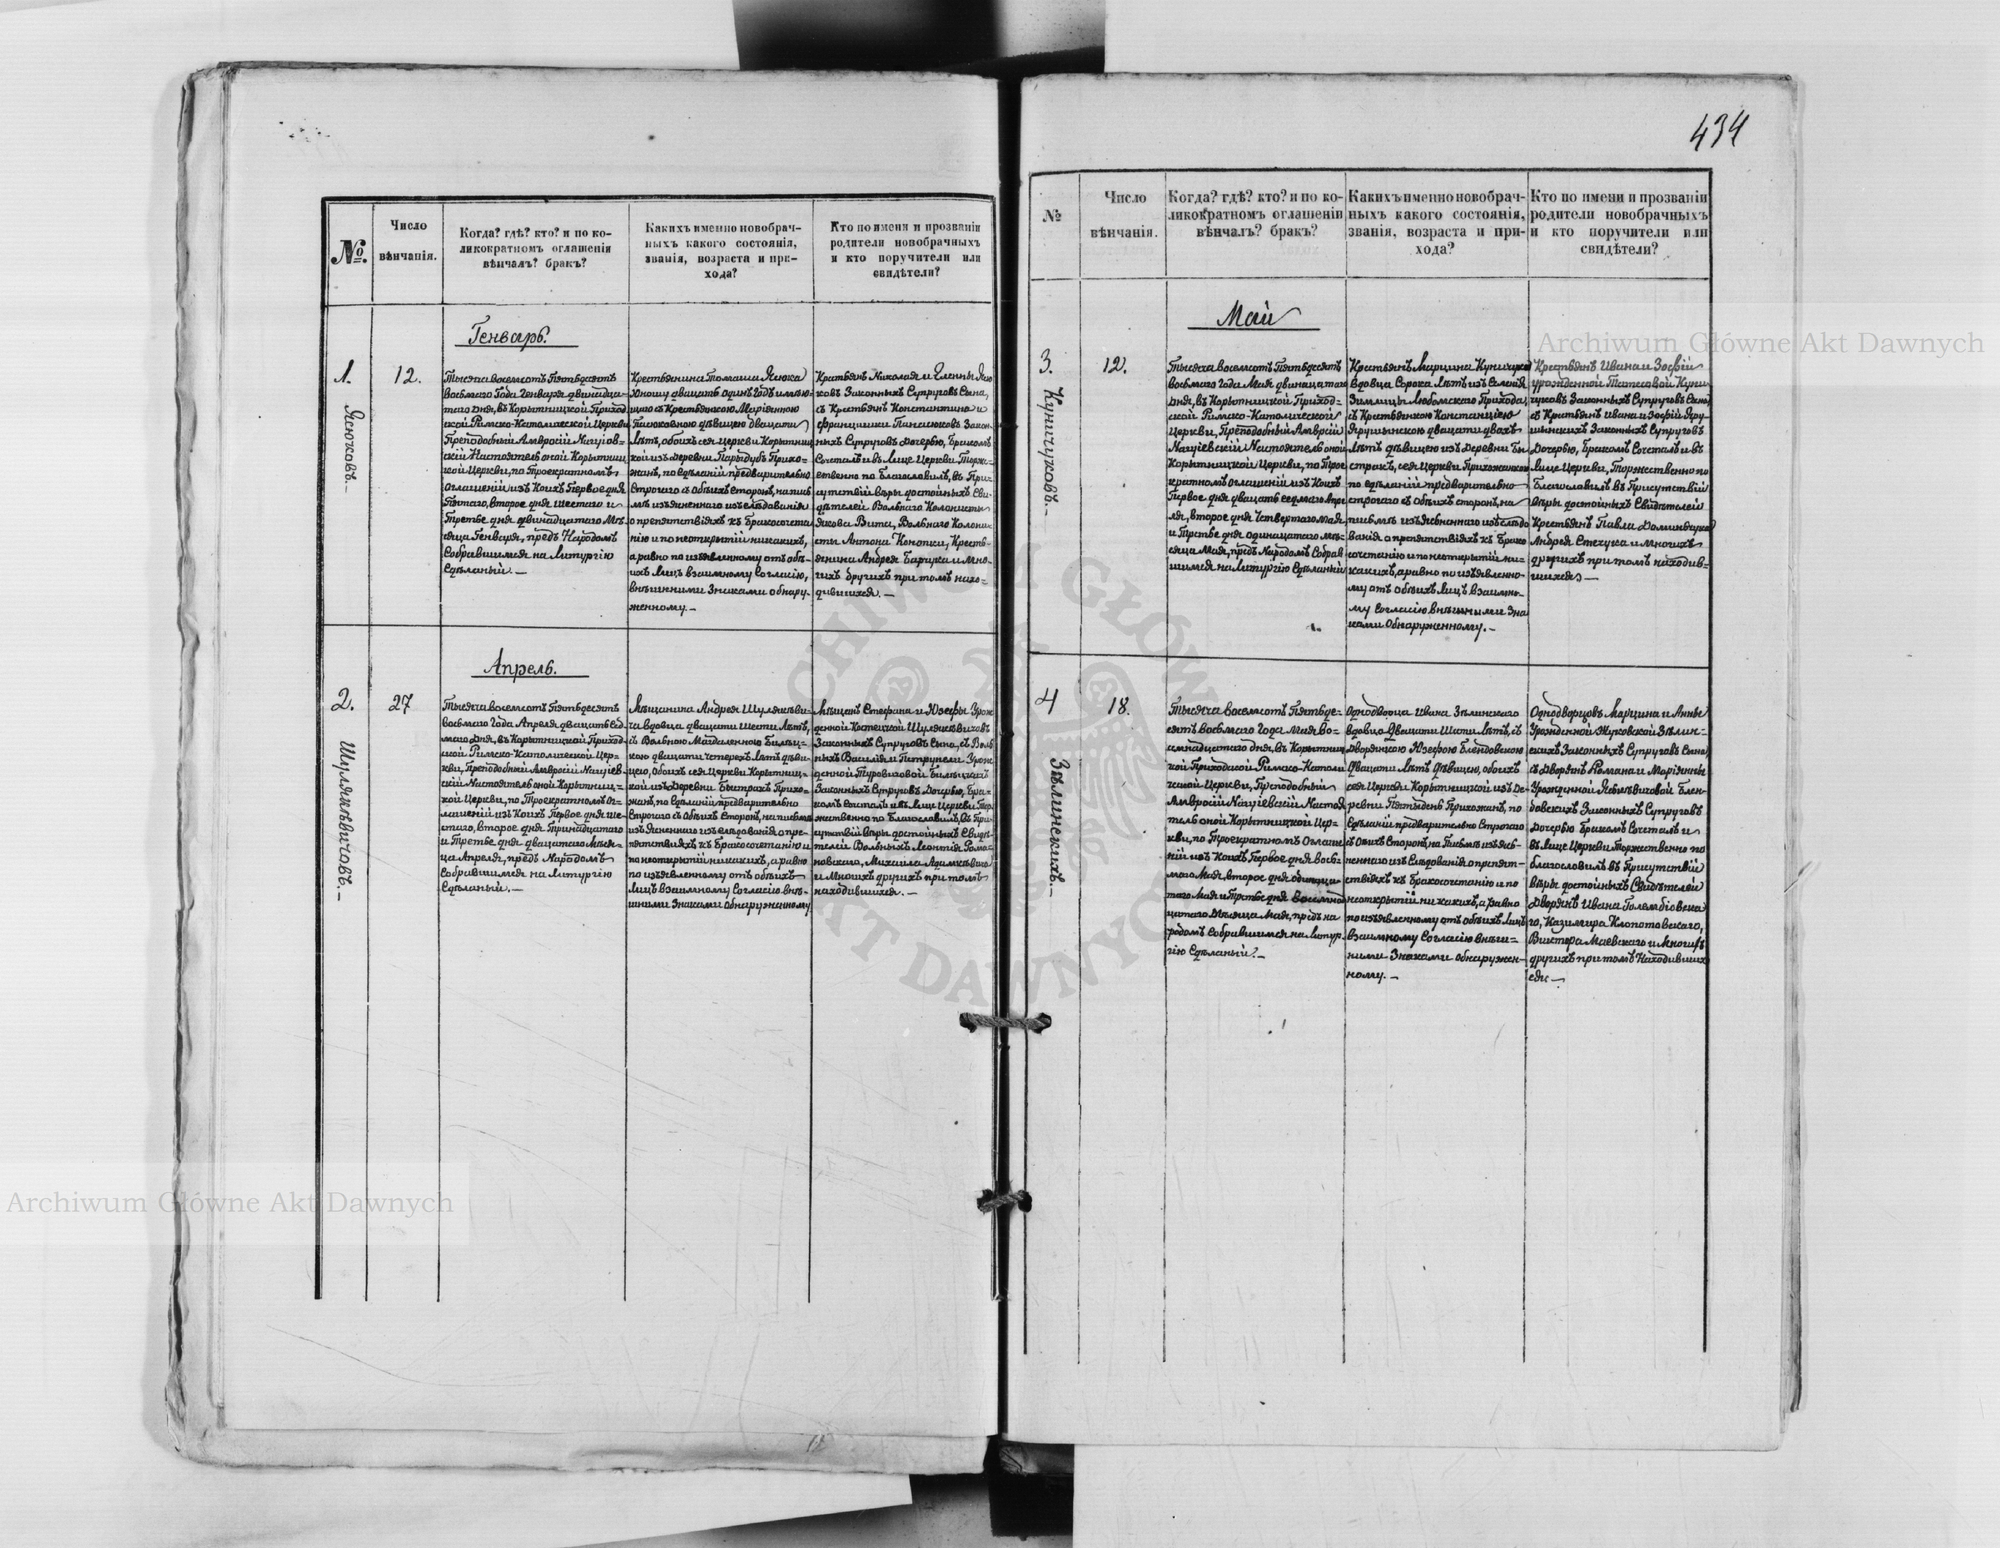 434
№.
Число
вѣнчанія.
Когда? гдѣ? кто? и по ко-
ликократномъ оглашенія
вѣнчалъ? бракъ?
Какихъ именно новобрач-
ныхъ какого состоянія,
званія, возраста и при-
хода?
Кто по имени и прозваніи
родители новобрачныхъ
и кто поручители или
свидѣтели?
Генварь.
1.
Ясюковъ.
12.
Тысяча восемсотъ Пятьдесятъ
восьмаго Года Генваря двѣнадца-
таго дня, въ Корытницкой Приход-
ской Римско-Католической Церкви
Преподобный Амвросій Нацѣев-
скій Настоятель оной Корытниц-
кой Церкви, по Троекратномъ
оглашеніи изъ Коихъ Первое дня
Пятаго, второе дня шестаго и
Третье дня двинадцатаго Мѣ-
сяца Генваря, предъ Народомъ
Собравшимся на Литургію
Сдѣланый. —
Крестьянина Томаша Ясюка
Юношу двацать одинъ Годъ имѣю-
щаго съ Крестьянкою Маріянною
Панасюковною дѣвицею двацати
Лѣтъ, обоихъ сея Церкви Корытниц-
кой изъ Деревни Парыдубъ Прихо-
жанъ, по сдѣланій предварительно
Строгаго съ обѣихъ сторонъ, на пись-
мѣ изъясненнаго изслѣдованія
о препятствіяхъ къ Бракосочета-
нію и по неоткрытій никакихъ,
а равно по изъявленному отъ обѣ-
ихъ Лицъ взаимному Согласію,
внѣшними Знаками обнару-
женному. —
Крестьянъ Николая и Елены Ясю-
ковъ Законныхъ Супруговъ Сына,
съ Крестьянъ Константина и
Францишки Панасюковъ Закон-
ныхъ Супруговъ Дочерью, Бракомъ
Сочеталъ и въ Лице Церкви Торже-
ственно по Благословилъ, въ При-
сутствій вѣры достойныхъ Сви-
дѣтелей Вольнаго Колонисты
Якова Вити, Вольнаго Колони-
сты Антона Конопки, Кресть-
янина Андрея Барчука и Мно-
гихъ другихъ при томъ нахо-
дившихся. —
Апрель.
2.
Шулякѣвичовъ. —
27
Тысяча восемсотъ Пятьдесятъ
восьмаго Года Апреля двацать Сед-
маго Дня, въ Корытницкой Приход-
ской Римско-Католической Цер-
кви, Преподобный Амвросій Нацѣев-
скій Настоятель оной Корытниц-
кой Церкви, по Троекратномъ Ог-
лашеній изъ Коихъ Первое дня ше-
стаго, второе дня Тринадцатаго
и Третье дня двацатаго Мѣся-
ца Апреля, предъ Народомъ
Собравшимся на Литургію
Сдѣланый. —
Мѣщанина Андрея Шулякѣви-
ча вдовца двацати шести Лѣтъ,
съ Вольною Магдаленною Билец-
кою двацати четырехъ Лѣтъ дѣви-
цею, обоихъ сея Церкви Корытниц-
кой изъ Деревни Быстракъ Прихо-
жанъ, по Сдѣланій предварительно
Строгаго съ обѣихъ Сторонъ, на письмѣ
изъясненнаго изслѣдованія о пре-
пятствіяхъ къ Бракосочетанію и
по неоткрытій никакихъ, а равно
по изъявленному отъ обѣихъ
Лицъ взаимному Согласію внѣ-
шними Знаками обнаруженному
Мѣщанъ Стефана и Юзефы Урож-
денной Костецкой Шулякѣвичовъ
Законныхъ Супруговъ Сына, съ Воль-
ныхъ Василія и Петрунели Урож-
денной Туровичовой Билецкихъ
Законныхъ Супруговъ Дочерью, Бра-
комъ Сочеталъ и въ Лице Церкви Тор-
жественно по Благословилъ, въ При-
сутствій вѣры достойныхъ Свидѣ-
телей Вольныхъ Леонтія Рома-
новскаго, Михаила Адамкѣвича
и Многихъ другихъ при томъ
находившихся. —
№
Число
вѣнчанія.
Когда? гдѣ? кто? и по ко-
ликократномъ оглашеніи
вѣнчалъ? бракъ?
Какихъ именно новобрач-
ныхъ какого состоянія,
званія, возраста и при-
хода?
Кто по имени и прозваніи
родители новобрачныхъ
и кто поручители или
свидѣтели?
Май
3.
Куничуковъ. —
12.
Тысяча восемсотъ Пятьдесятъ
восьмаго Года Мая двинацатаго
дня, въ Корытницкой Приход-
ской Римско-Католической
Церкви, Преподобный Амвросій
Нацѣевскій Настоятель оной
Корытницкой Церкви, по Трое-
кратномъ оглашеній изъ Коихъ
Первое дня двацать седмаго Апре-
ля, второе дня Четвертаго Мая,
и Третье дня одинацатаго Мѣ-
сяца Мая, предъ Народомъ Собрав-
шимся на Литургію Сдѣланый
Крестьянъ Марцина Куничука
вдовца Сорока Лѣтъ изъ Селенія
Зимлицы Любомскаго Прихода,
съ Крестьянкою Констанціею
Ярушынскою двацати двохъ
Лѣтъ дѣвицею изъ Деревни Бы-
стракъ, сея Церкви Прихожанкою
по сдѣланій предварительно
строгаго съ обѣихъ сторонъ, на
письмѣ изъясненнаго изслѣдо-
ванія о препятствіяхъ къ Брако-
сочетанію и по неоткрытій ни-
какихъ, а равно по изъявленно-
му отъ обѣихъ Лицъ взаимно-
му Согласію внѣшными Зна-
ками обнаруженному. —
Крестьянъ Ивана и Зофій
урожденной Куни-
чуковъ Законныхъ Супруговъ Сына
съ Крестьянъ Ивана и Зофій Яру-
шынскихъ Законныхъ Супруговъ
Дочерью, Бракомъ Сочеталъ и въ
Лице Церкви, Торжественно по
Благословилъ въ Присутствій
вѣры достойныхъ Свидѣтелей
Крестьянъ Павла Доминчука
Андрея Стецука и Многихъ
другихъ при томъ находив-
шихся —
4
Зѣлинскихъ. —
18.
Тысяча восемсотъ Пятьде-
сятъ восьмаго Года Мая во-
самнадцатаго дня, въ Корытниц-
кой Приходской Римско-Католи-
ческой Церкви, Преподобный
Амвросій Нацѣевскій Настоя-
тель оной Корытницкой Цер-
кви, по Троекратномъ Оглаше-
ній изъ Коихъ Первое дня вось-
маго Мая, второе дня одинадца-
таго Мая и Третье дня восемнад-
цатаго Мѣсяца Мая, предъ на-
родомъ Собравшимся на Литур-
гію Сдѣланый. —
Однодворца Ивана Зѣлинскаго
вдовца Двацати Шести Лѣтъ, съ
Дворянкою Юзефою Блендовскою
Двацати Лѣтъ Дѣвицею, обоихъ
сея Церкви Корытницкой изъ Де-
ревни Пятыдень Прихожанъ, по
Сдѣланій предварительно Строгаго
съ Обѣихъ Сторонъ, на Письмѣ изъяс-
неннаго изъ Слѣдованія о препят-
ствіяхъ къ Бракосочетанію и по
неоткрытій никакихъ, а равно
по изъявленному отъ обѣихъ Лицъ
взаимному Согласію внѣш-
ними Знаками обнаружен-
ному. —
Однодворцовъ Марцина и Анны
Урожденной Жуковской Зѣлин-
скихъ Законныхъ Супруговъ Сына
съ Дворянъ Романа и Маріянны
Урожденной Блен-
довскихъ Законныхъ Супруговъ
Дочерью Бракомъ Сочеталъ и
въ Лице Церкви Торжественно по
благословилъ въ Присутствій
вѣры достойныхъ Свидѣтелей
Дворянъ Ивана Голембіовска-
го, Казимира Клопотовскаго,
Виктора Маевскаго и Многихъ
другихъ при томъ Находивших-
ся. —
12
Archiwum Główne Akt Dawnych
Archiwum Główne Akt Dawnych
ARCHIWUM GŁÓWNE
AKT DAWNYCH